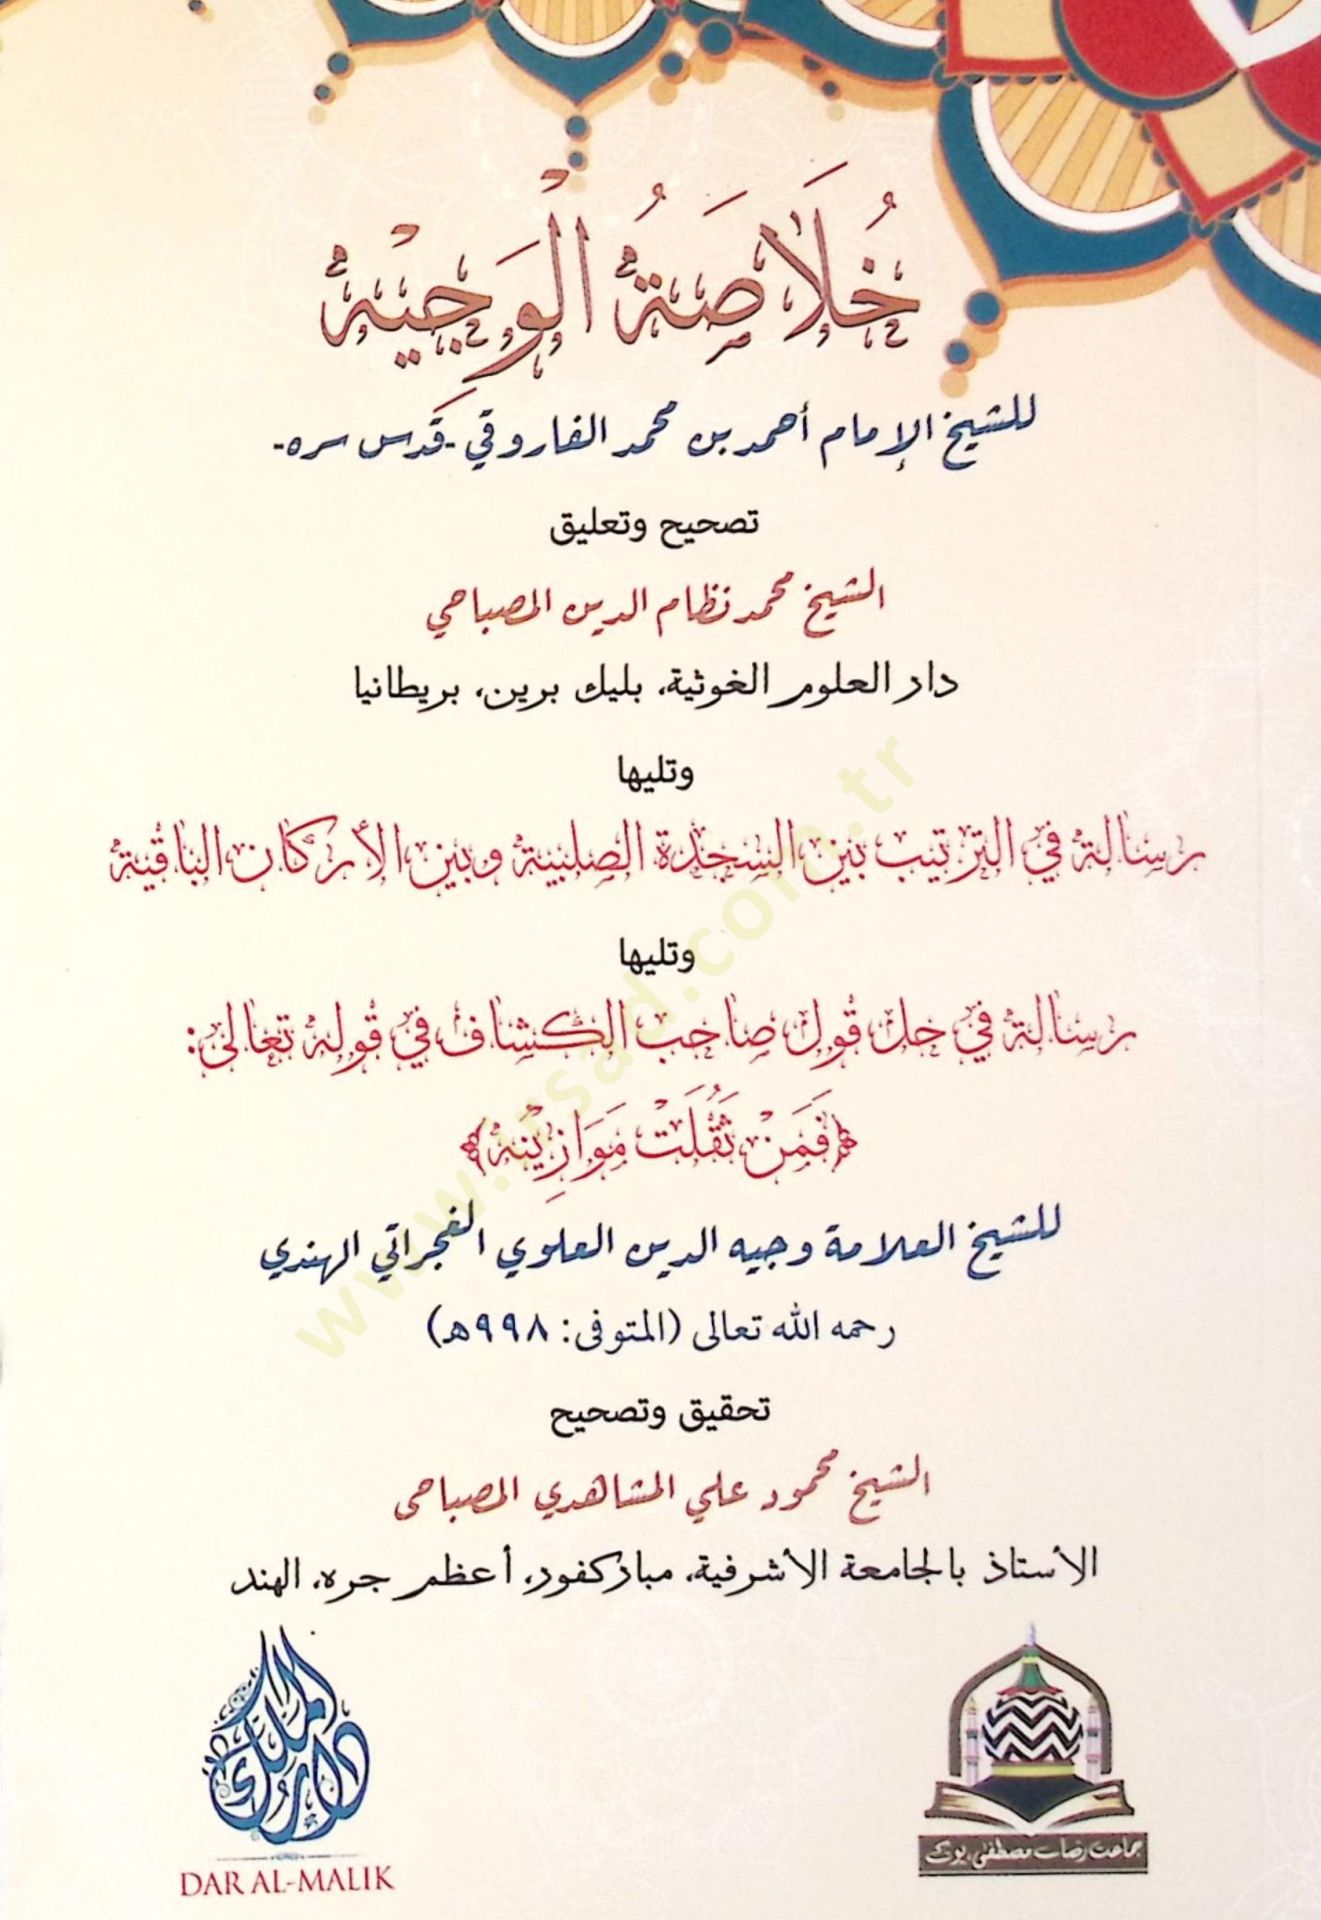 خُلَاصَةُ الْوَجِيْهِ
للشيخ الإمام أحمد بن محمد الفاروقي -قدس سره-
تصحيح وتعليق
الشيخ محمد نظام الدين المصباحي
دار العلوم الغوثية، بليك برين، بريطانيا
وتليها
رسالة في الترتيب بين السجدة الصلبية وبين الأركان الباقية
وتليها
رسالة في حل قول صاحب الكشاف في قوله تعالى:
﴿فَمَنْ ثَقُلَتْ مَوَازِيْنُه﴾
للشيخ العلامة وجيه الدين العلوي الغجراتي الهندي
رحمه الله تعالى (المتوفى: ٩٩٨هـ)
تحقيق وتصحيح
الشيخ محمود علي المشاهدي المصباحى
الأستاذ بالجامعة الأشرفية، مباركفور، أعظم جره، الهند
دار الملك
DAR AL-MALIK
جماعت رضائے مصطفی، یوکے
www.irsad.com.tr